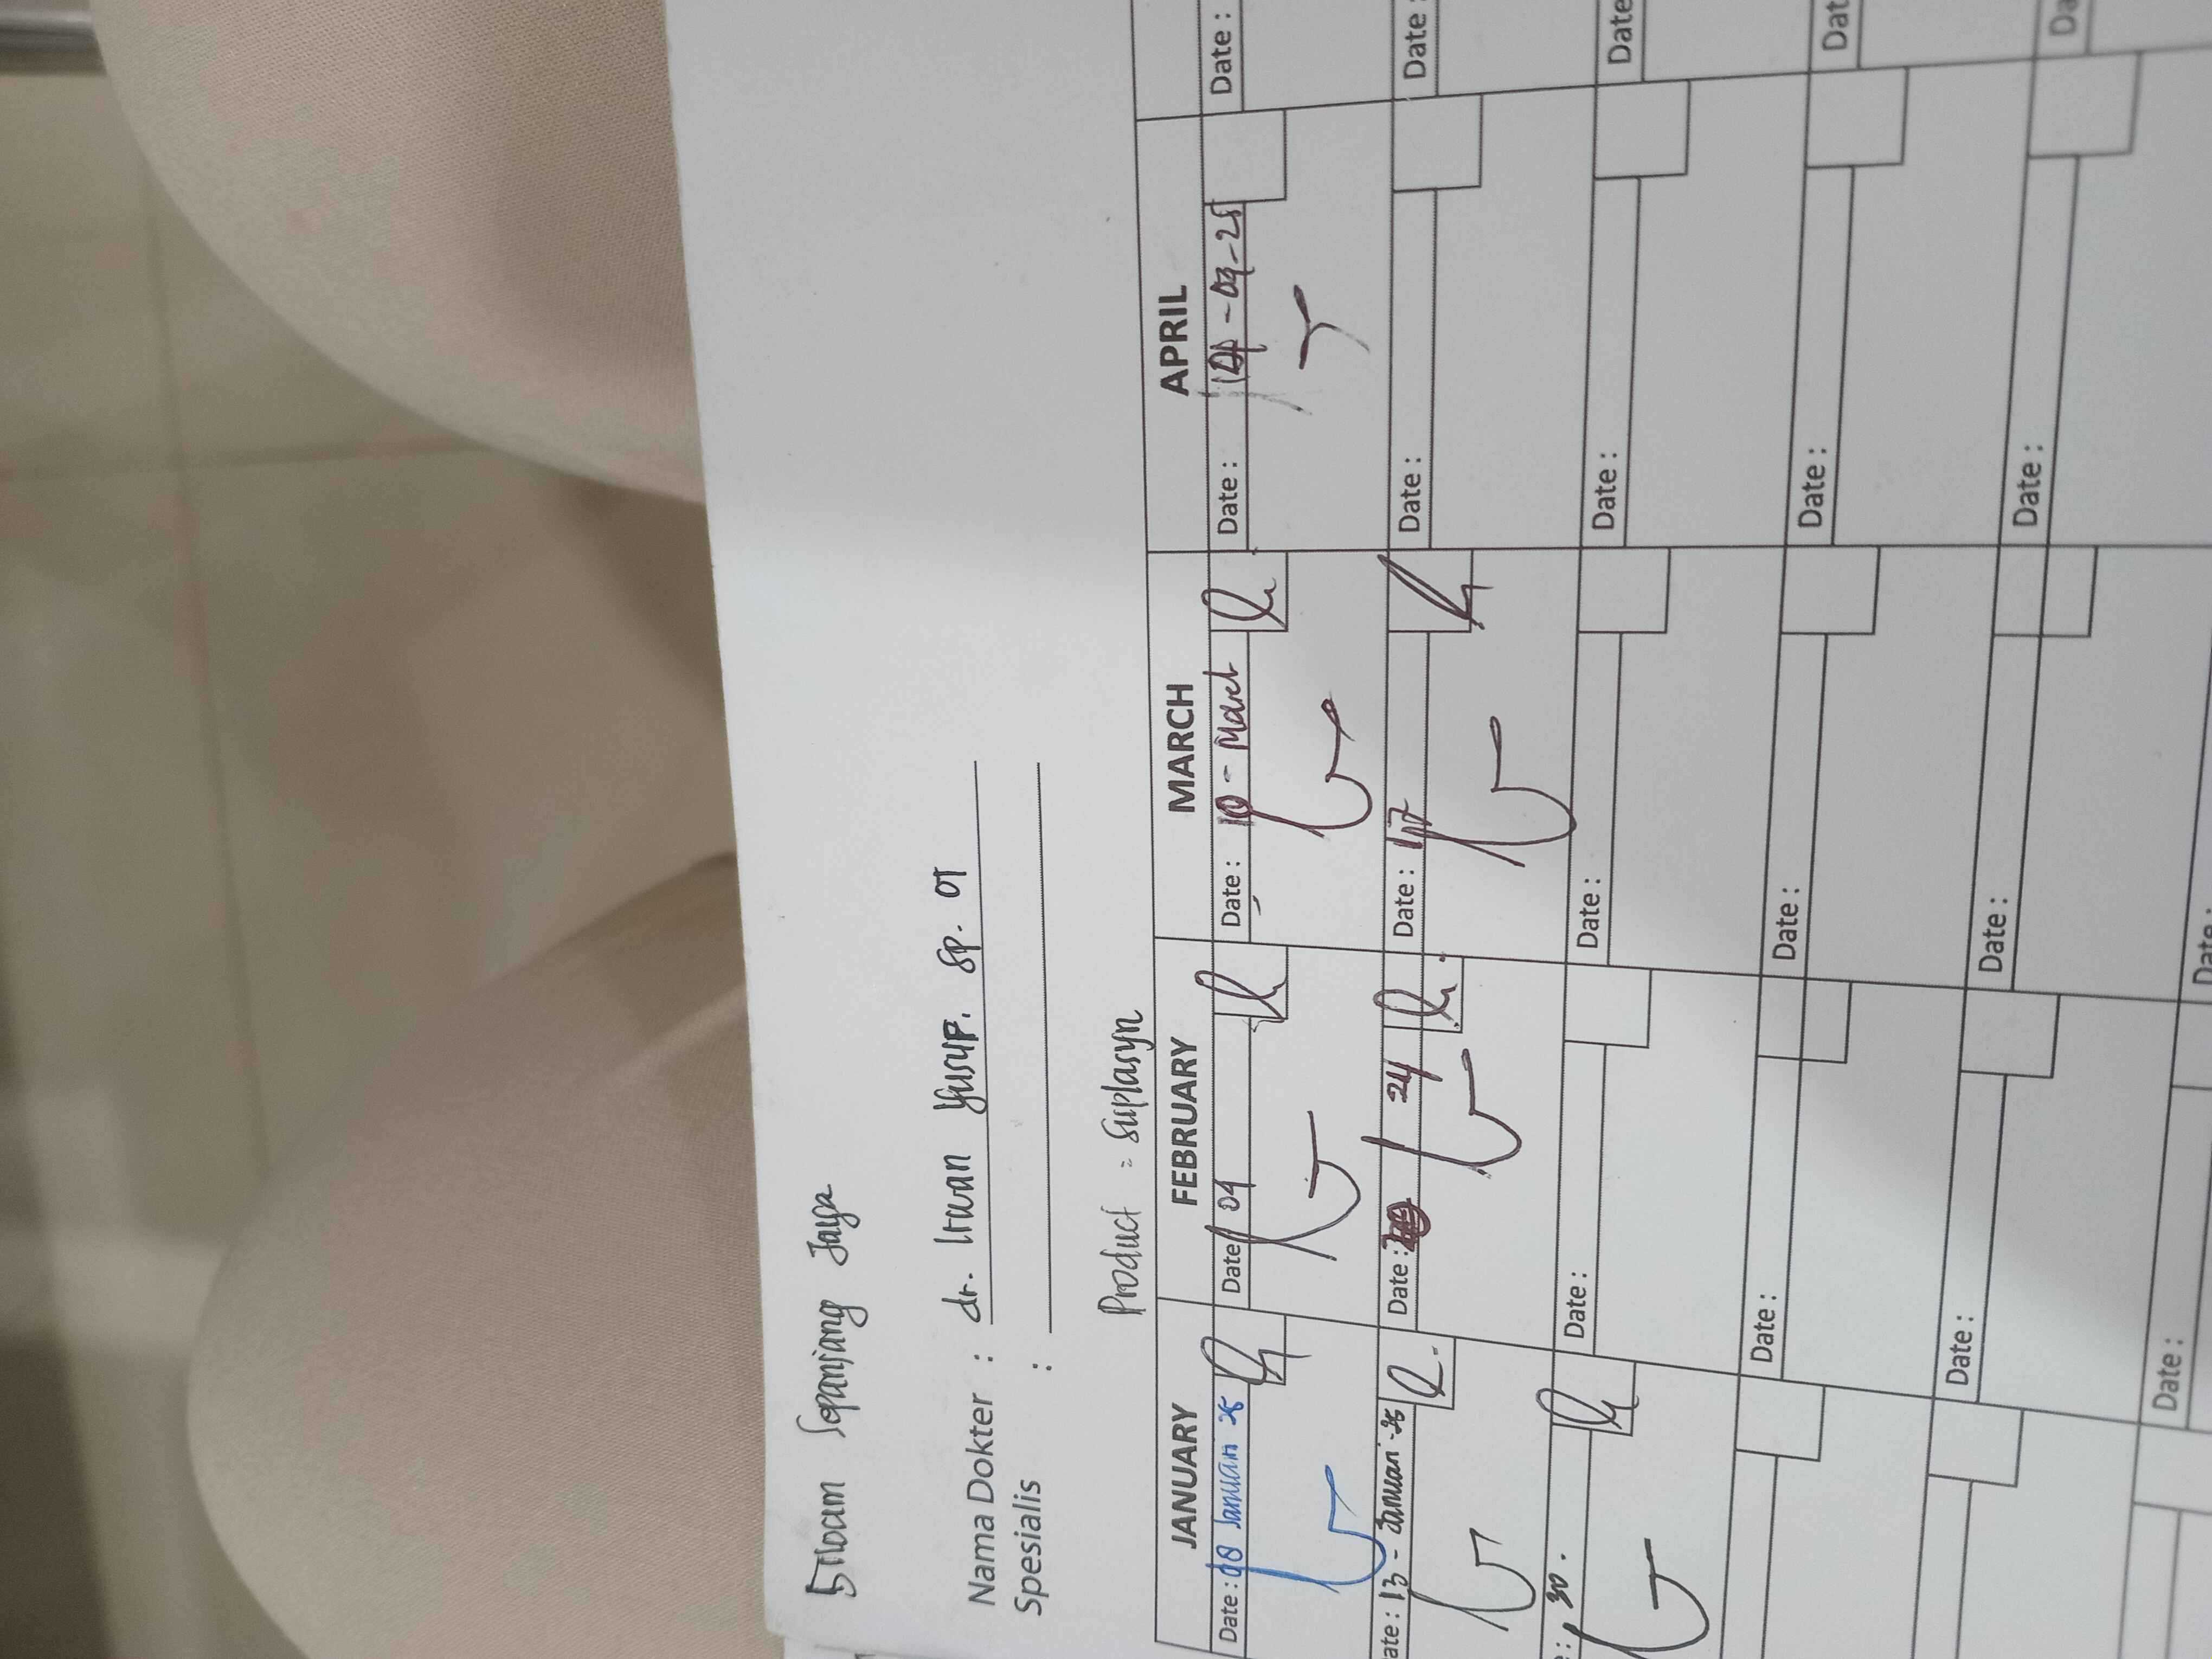 Siloam Sepanjang Jaya
Nama Dokter : dr. Irwan Yusuf. Sp. OT
Spesialis :
Product = Suplasyn
JANUARY FEBRUARY MARCH APRIL
Date : 08 Januari 25 Date 04 Date : 10 - Maret Date : -25 Date :
ate : 13 - Januari -25 Date : 24 Date : 17 Date : Date :
: 30. Date : Date : Date : Date
Date : Date : Date : Dat
Date : Date : Date : Da
Date : Date :